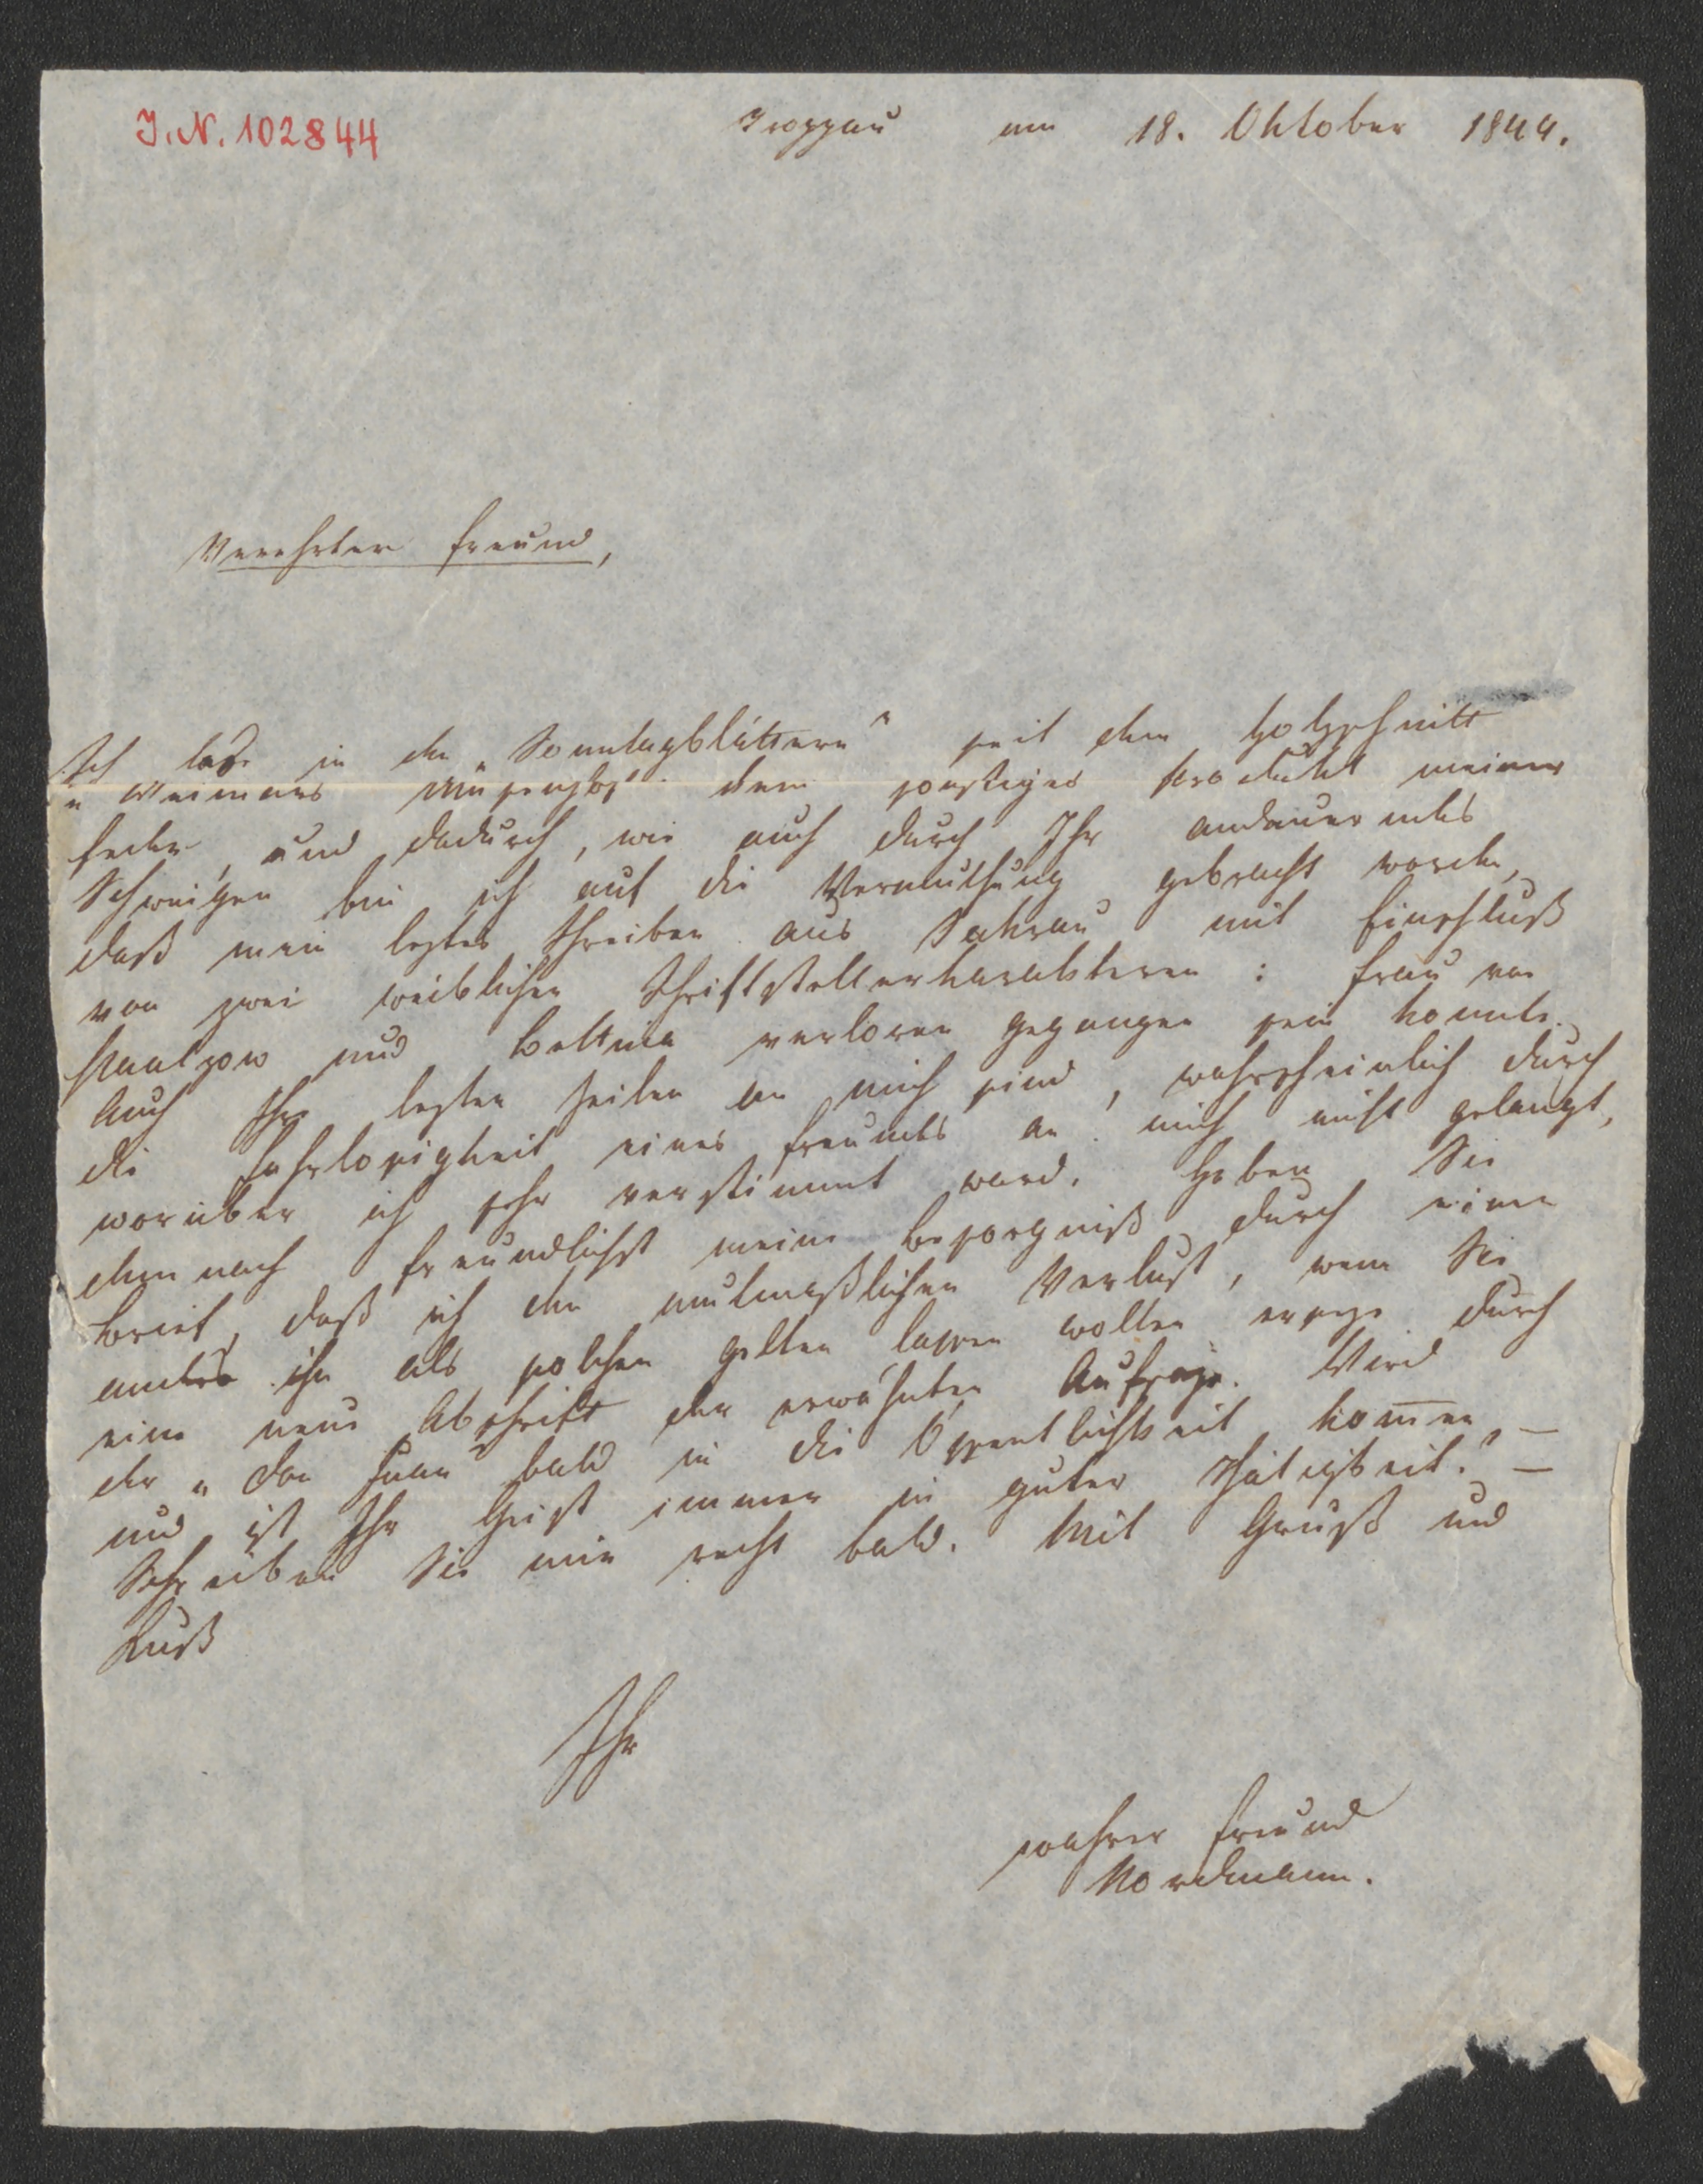 J. N. 102844
Troppau am 18. Oktober 1844.
Verehrter Freund,
Ich las in den „Sonntagsblättern" seit dem Holzschnitt
„Weimars kein sonstiges Produkt meiner
Feder, und dadurch, wie auch durch Ihr andauerndes
Schweigen bin ich auf die Vermuthung gebracht worden,
daß mein leztes Schreiben aus Sakrau mit Einschluß
von zwei weiblichen Schriftstellerkarakteren: Frau von
Paalzow und Bettina verloren gegangen sein konnte.
Auch Ihre lezten Zeilen an mich sind, wahrscheinlich durch
die Fahrlosigkeit eines Freundes an mich nicht gelangt,
worüber ich sehr verstimmt ward. Heben Sie
demnach freundlichst meine Besorgniß durch einen
Brief, daß ich den mutmaßlichen Verlust, wenn Sie
anders ihn als solchen gelten lassen wollen ersetze durch
eine neue Abschrift der erwähnten Aufsäze. Wird
der „Don Juan" bald in die Öffentlichkeit kommen, —
und ist Ihr Geist immer in guter Thätigkeit? —
Schreiben Sie mir recht bald. Mit Gruß und
Kuß
Ihr
wahrer Freund
Nordmann.